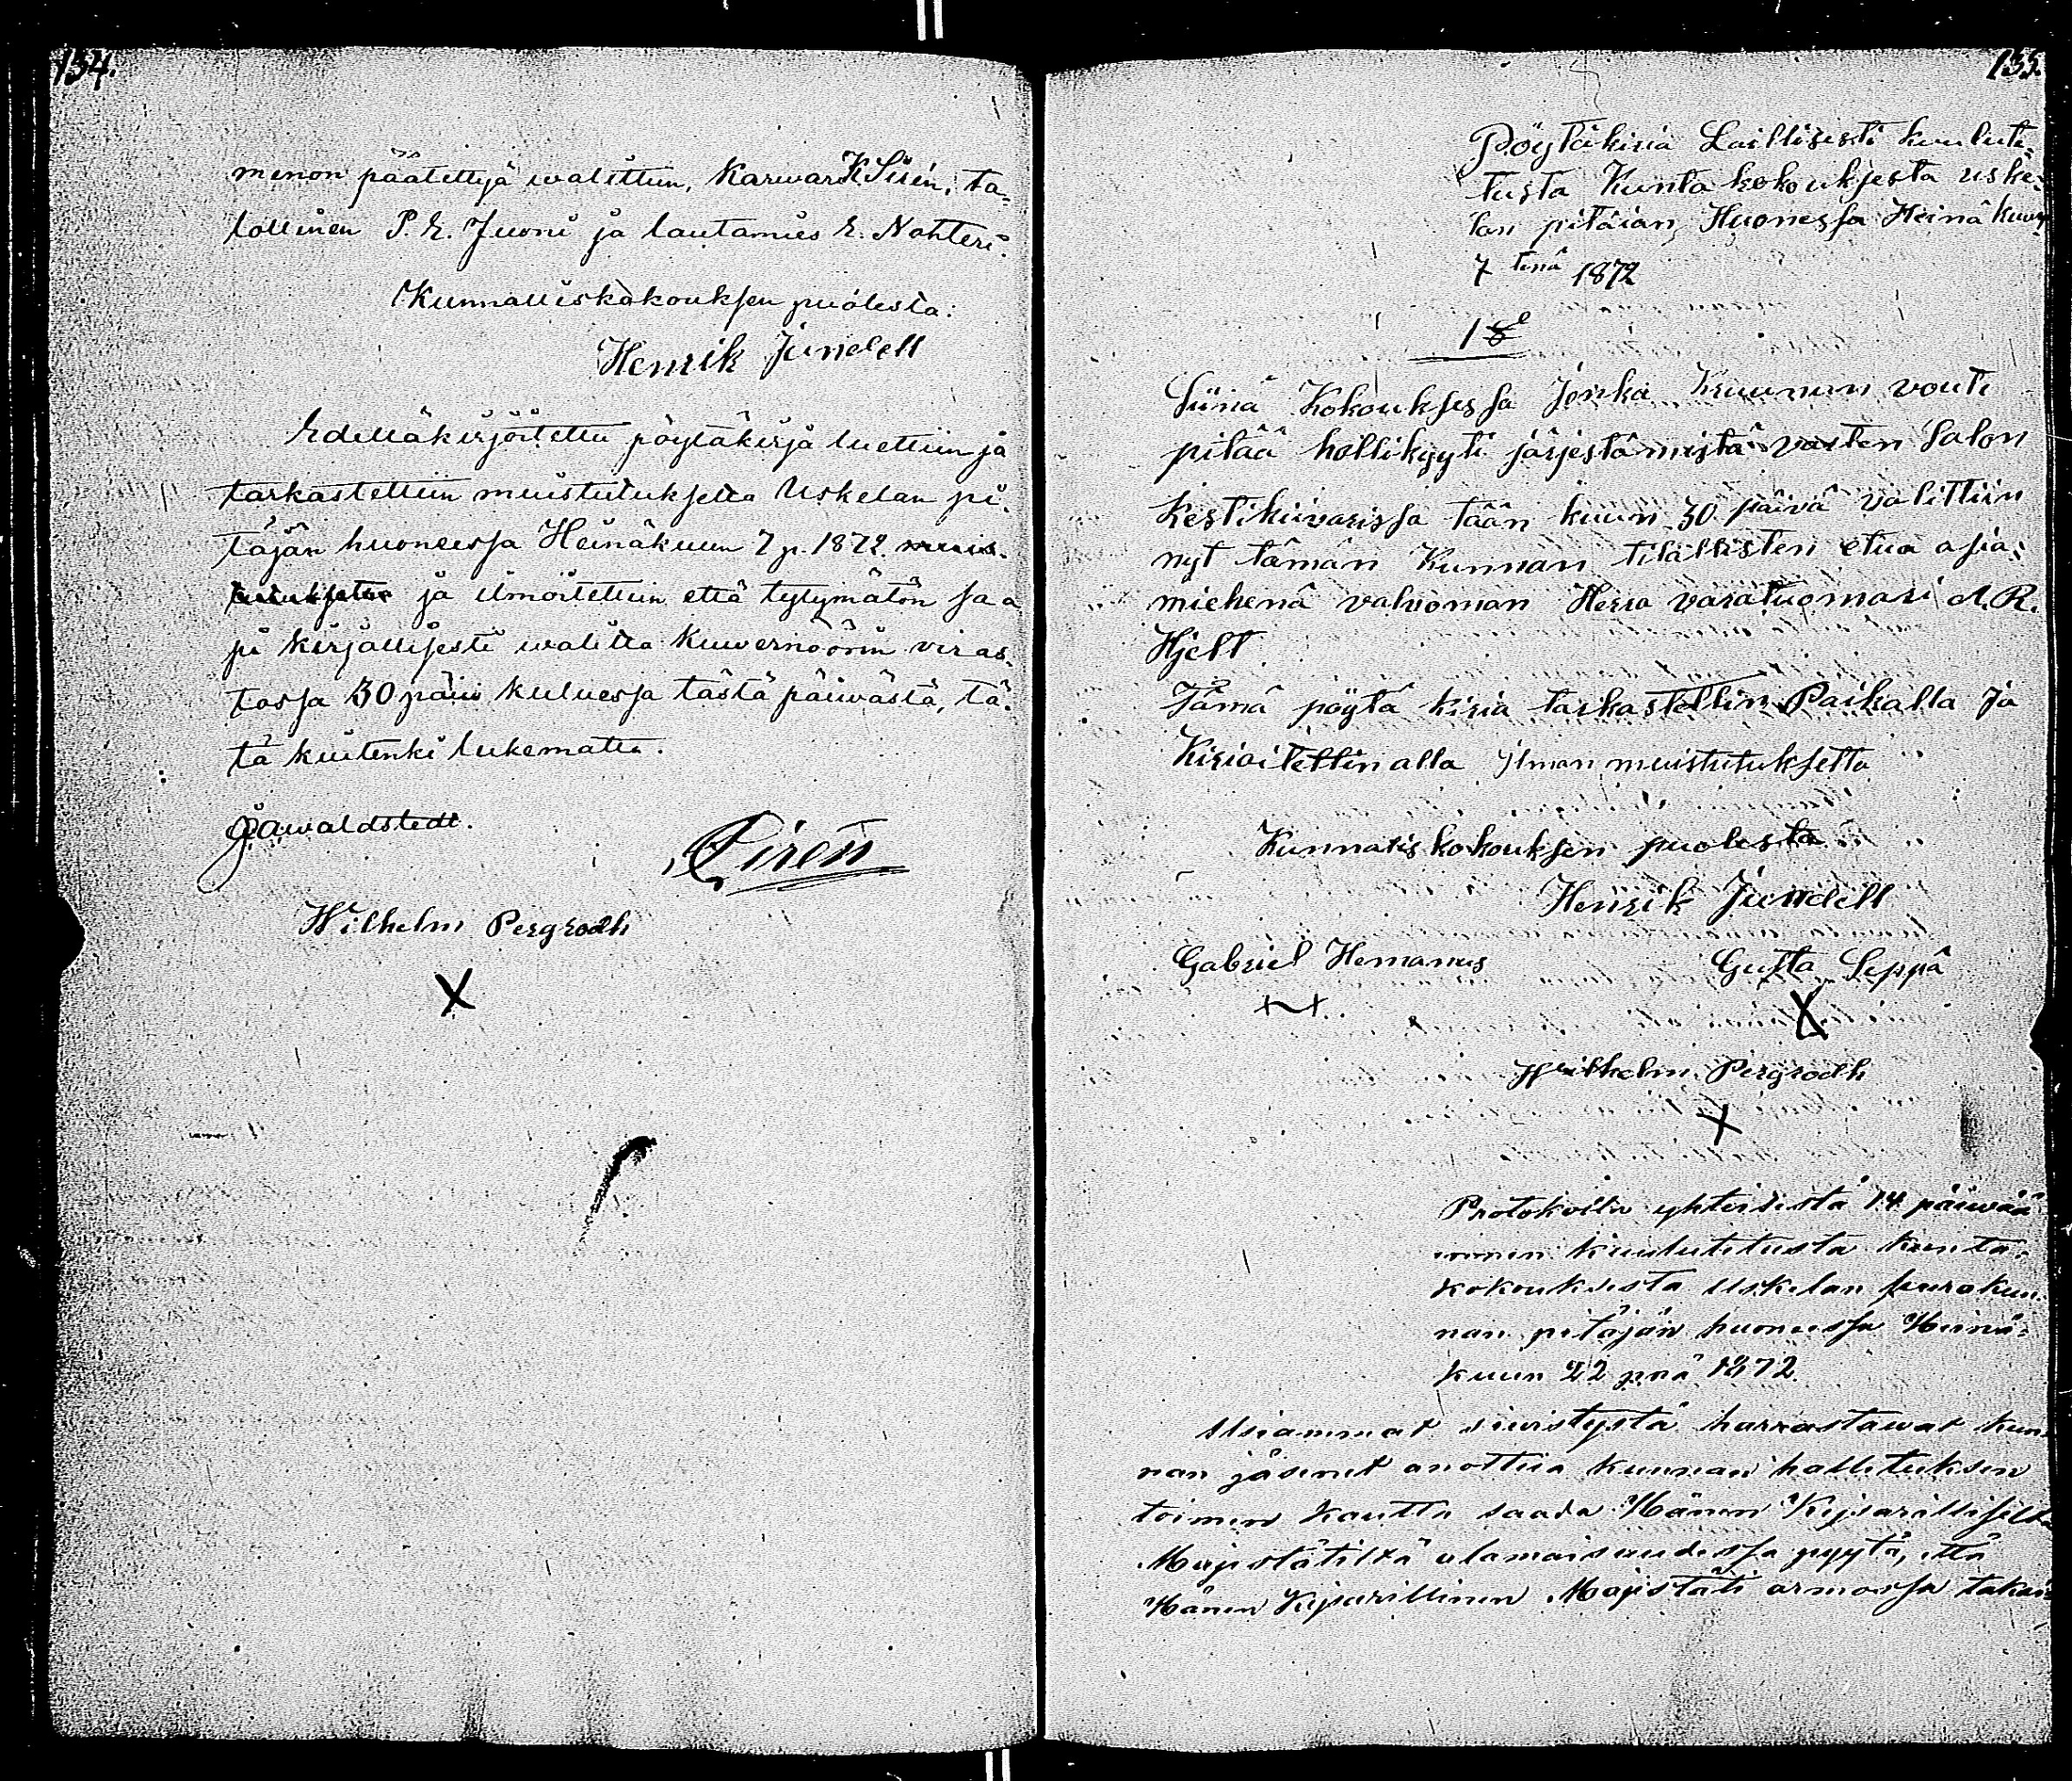 134.
menon päätettyä walittiin, Karwari K Sirén, ta-
lollinen P. E. Juoni ja lautamies E. Nohteri.
Kunnalliskokouksen puolesta.
Henrik Jundell
Edelläkirjoitettu pöytäkirja luettiin ja
tarkastettiin muistutuksetta Uskelan pi-
täjän huoneessa Heinäkuun 7 p. 1872.
ja ilmoitettiin että tytymätön saa
pi kirjallisesti walitta Kuwernöörin viras-
tossa 30 päiw kuluessa tästä päiwästä, tä-
tä kuitenki lukematta.
J Awaldstedt.
Siren
Wilhelm Pergrodh
X
135.
Pöytäkiria Laillisesti kuulute-
tusta Kunta kokouksesta uske-
lan pitäian Huonessa Heinä kuun
7 tenä 1872
1 §
Siinä Kokouksessa Jonka Kruunun vouti
pitää hollikyyti järjestämistä vasten Salon
Kestikiivarissa tään kuun 30 päivä valittiin
nyt tämän Kunnan tilallisten etua asia-
miehenä valvoman Herra varatuomari A. R.
Hjelt
Tämä pöytä kiria tarkastettin Paikalla Ja
Kirioitettin alla ilman muistutuksetta
Kunnaliskokouksen puolesta
Henrik Jundell
Gabriel Hemanus Gusta Seppä
X
Wilhelm Pergrodh
X
Protokolla yhteisestä 14 päiwää
ennen kuulutetusta kunta-
kokouksesta Uskelan seurakun-
nan pitäjän huoneessa Heinä-
kuun 22 pnä 1872.
Useammat siwistystä harrastawat kun-
nan jäsenet anottua kunnan hallituksen
toimen kautta saada Hänen Keisarilliselta
Majestätiltä alamaisuudessa pyytä, että
Hänen Keisarillinen Majestäti armossa